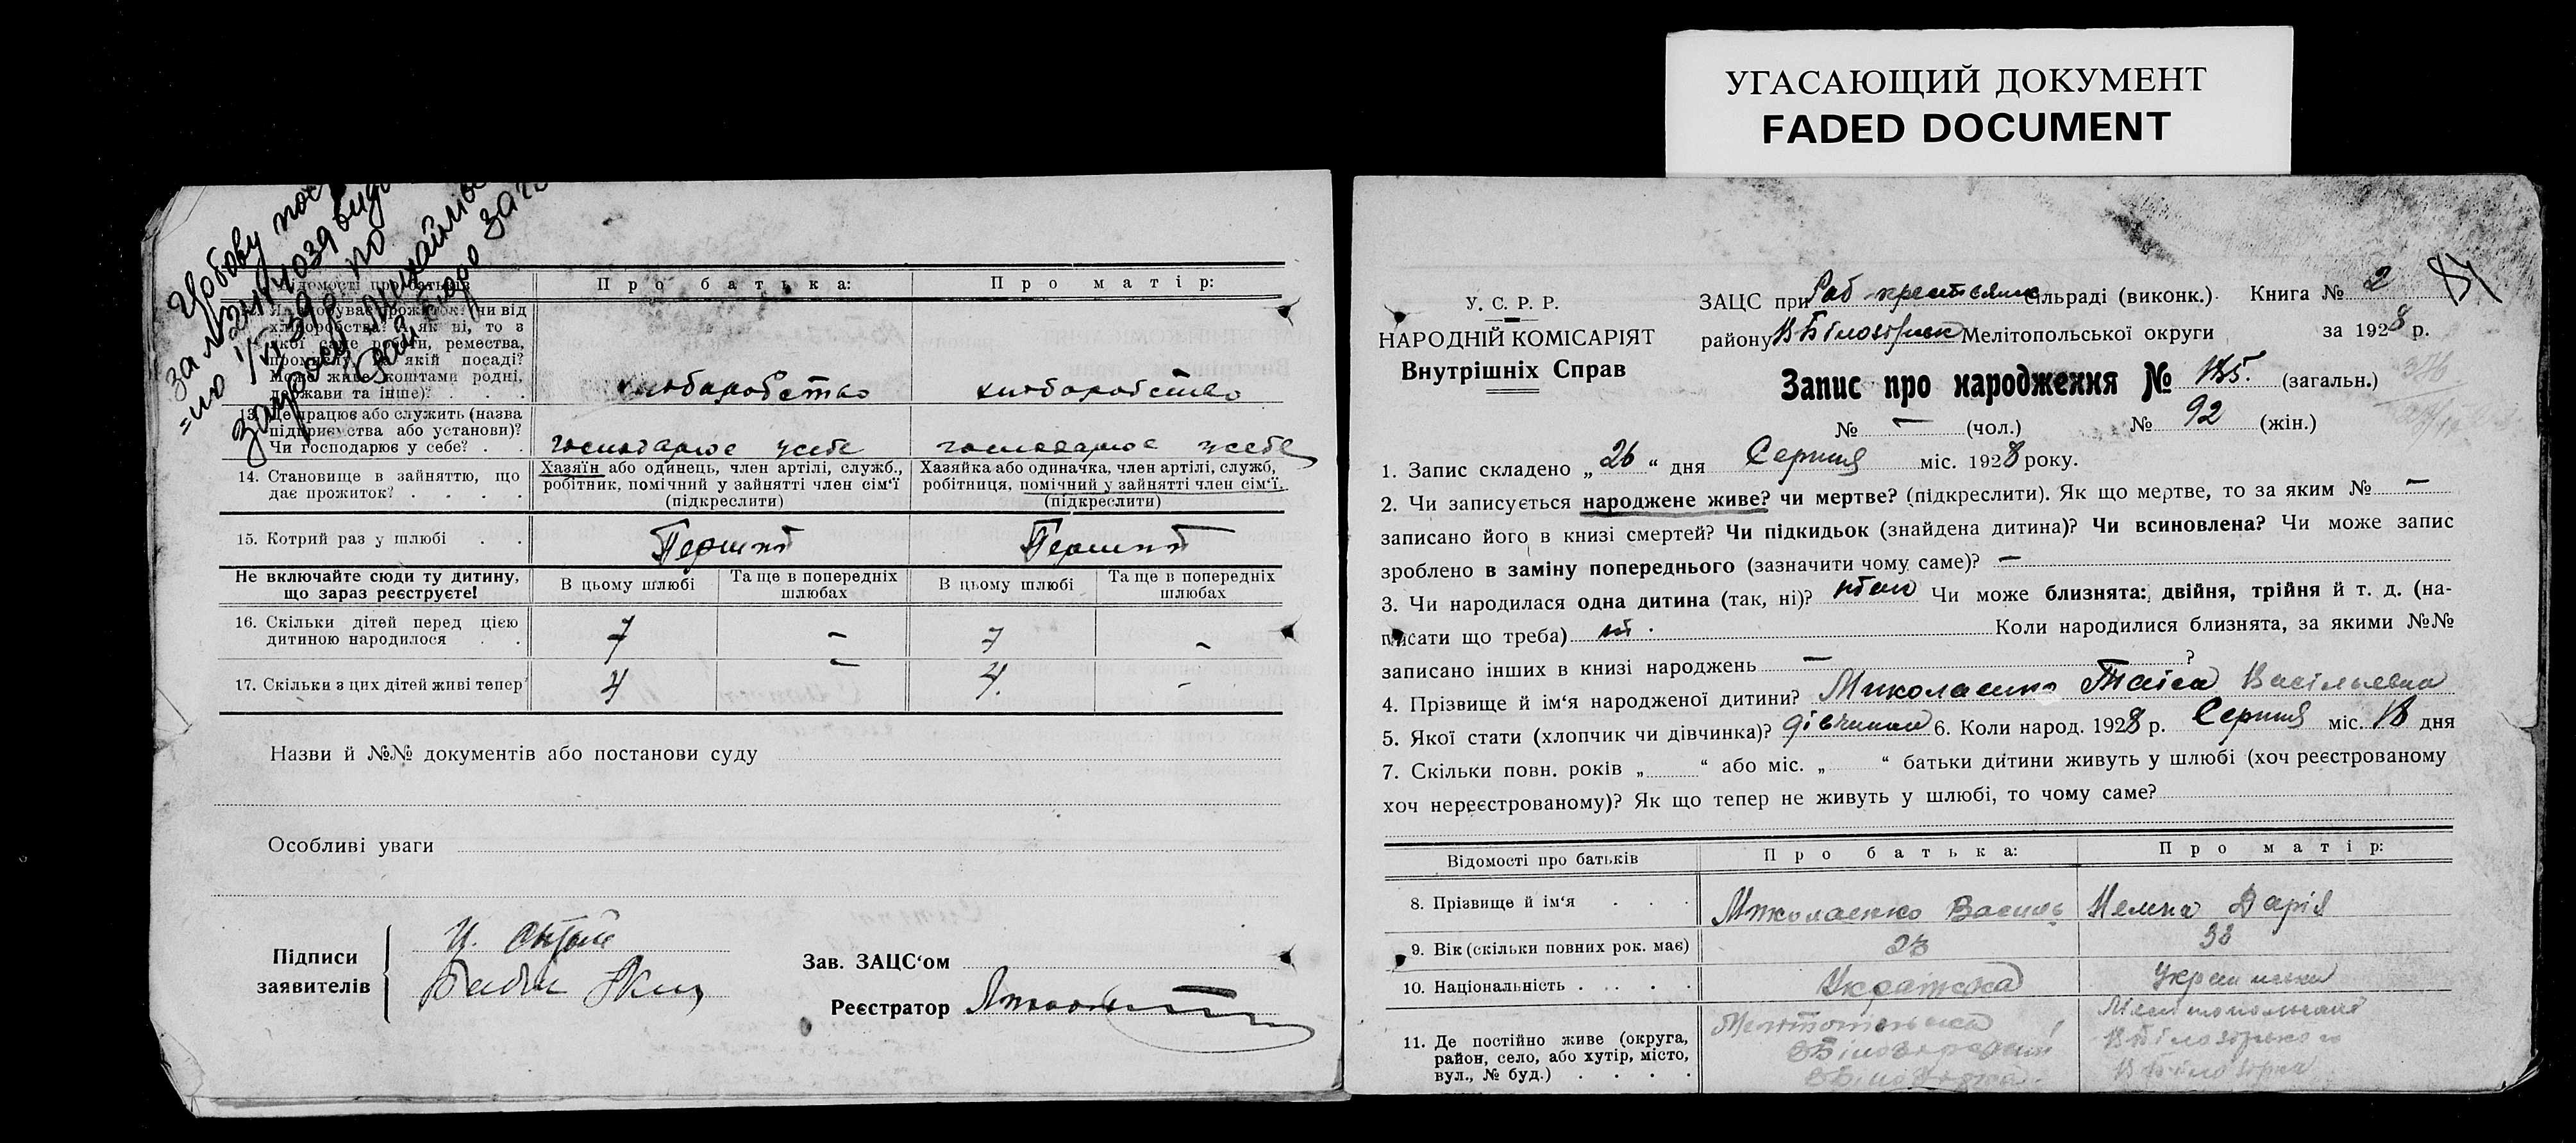 УГАСАЮЩИЙ ДОКУМЕНТ
FADED DOCUMENT
Відомості про батьків
П р о б а т ь к а:
П р о м а т і р:
хліборобства? А як ні, то з
якої саме роботи, ремества,
промислу, на якій посаді?
Може живе коштами родні,
держави та інше)? . . . .
хліборобство
хліборобство
13. Де працює або служить (назва
підприємства або установи)?
Чи господарює у себе? . .
господарює у себе
господарює у себе
14. Становище в зайняттю, що
дає прожиток? . . . .
Хазяїн або одинець, член артілі, служб.,
робітник, помічний у зайнятті член сім'ї
(підкреслити)
Хазяйка або одиначка, член артілі, служб,
робітниця, помічний у зайнятті член сім'ї.
(підкреслити)
15. Котрий раз у шлюбі . .
Перший
Перший
Не включайте сюди ту дитину,
що зараз реєструєте!
В цьому шлюбі
Та ще в попередніх
шлюбах
В цьому шлюбі
Та ще в попередніх
шлюбах
16. Скільки дітей перед цією
дитиною народилося . .
7
–
7
–
17. Скільки з цих дітей живі тепер?
4
–
4.
–
Назви й №№ документів або постанови суду
Особливі уваги
Підписи
заявителів
Зав. ЗАЦС'ом
Реєстратор
У. С. Р. Р.
НАРОДНІЙ КОМІСАРІЯТ
Внутрішніх Справ
ЗАЦС при сільраді (виконк.). Книга № 2
району В Білозірськ Мелітопольської округи за 1928 р.
Запис про народження № 185. (загальн.)
№ – (чол.) № 92 (жін.)
1. Запис складено „ 26 “ дня Серпня міс. 1928 року.
2. Чи записується народжене живе? чи мертве? (підкреслити). Як що мертве, то за яким № –
записано його в книзі смертей? Чи підкидьок (знайдена дитина)? Чи всиновлена? Чи може запис
зроблено в заміну попереднього (зазначити чому саме)? –
3. Чи народилася одна дитина (так, ні)? Чи може близнята: двійня, трійня й т. д. (на-
писати що треба) ні. Коли народилися близнята, за якими №№
записано інших в книзі народжень – ?
4. Прізвище й ім'я народженої дитини? Миколаенко Таїса Васільевна
5. Якої стати (хлопчик чи дівчинка)? дівчинка 6. Коли народ. 1928 р. Серпня міс. 18 дня
7. Скільки повн. років „ “ або міс. „ “ батьки дитини живуть у шлюбі (хоч реєстрованому
хоч нереєстрованому)? Як що тепер не живуть у шлюбі, то чому саме?
Відомості про батьків
П р о б а т ь к а:
П р о м а т і р:
8. Прізвище й ім'я . . .
Миколаенко Василь
Дарія
9. Вік (скільки повних рок. має)
38
10. Національність . . . . .
Українська
Українська
11. Де постійно живе (округа,
район, село, або хутір, місто,
вул., № буд.) . . . .
Мелітопольська
В Білозірського
В Білозірка